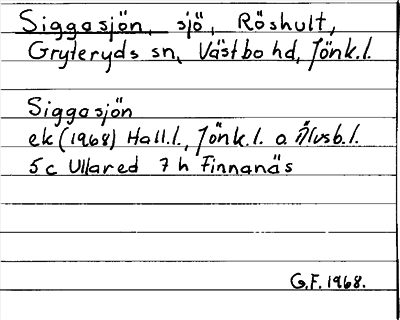 Siggasjön, sjö, Röshult,
Gryteryds sn, Västbo hd, Jönk.l.
Siggasjön
ek (1968) Hall.l., Jönk.l. o. Älvsb.l.
5c Ullared 7h Finnanäs
G.F. 1968.